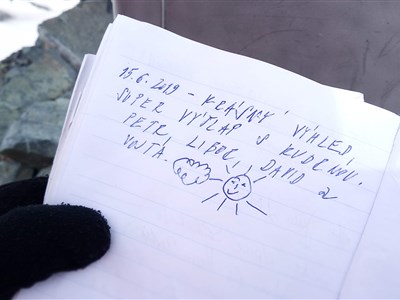 15.6.2019 - KRÁSNÝ VÝHLED,
SUPER VÝŠLAP S KUDRNOU.
PETR, LIBOR, DAVID a
VOJTA.